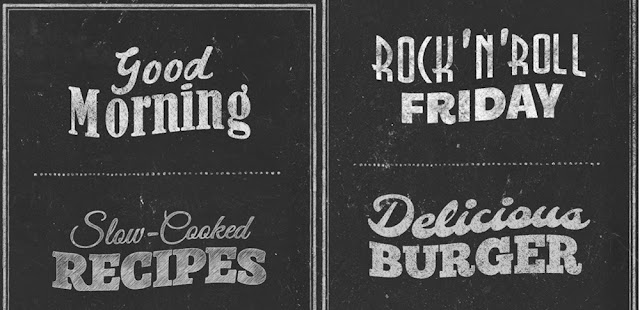 Good
Morning
Slow-Cooked
RECIPES
ROCK'N'ROLL
FRIDAY
Delicious
BURGER